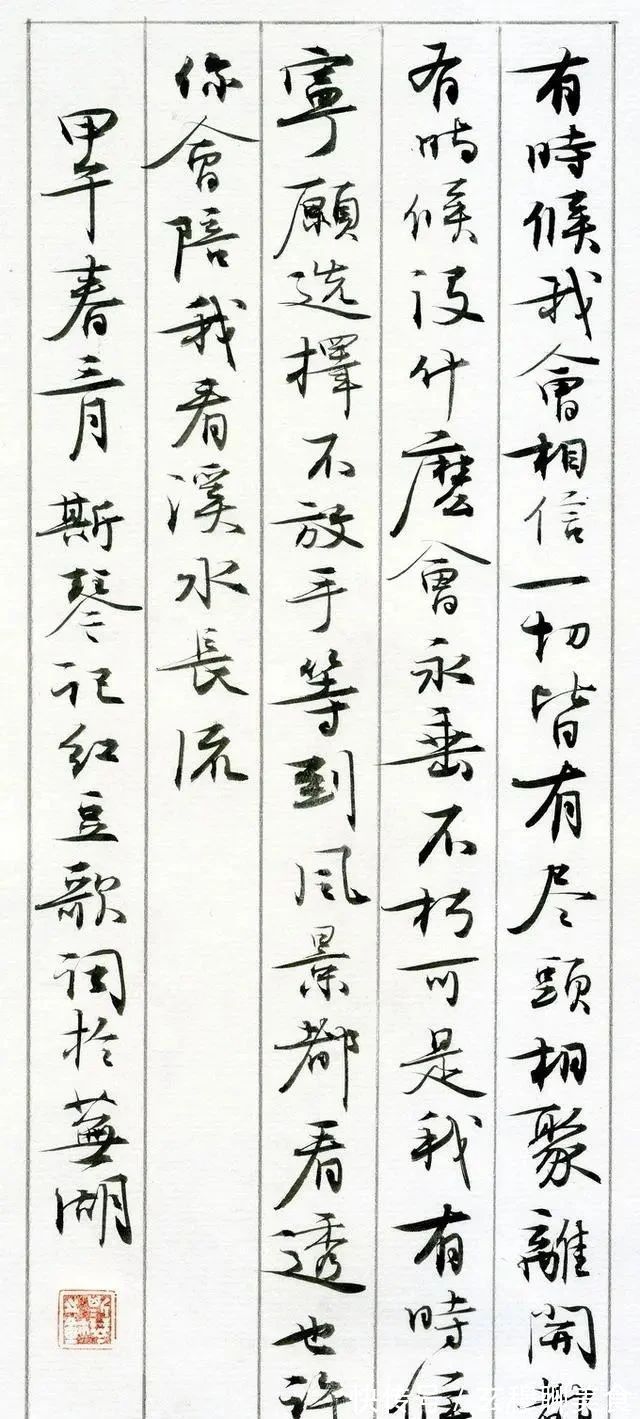 有時候我會相信一切皆有尽頭相聚離開
有時候没什麽會永垂不朽可是我有時
寧願选擇不放手等到風景都看透也許
你會陪我看溪水長流
甲午春三月斯琴记红豆歌词於蕪湖